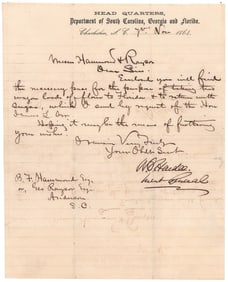 HEAD QUARTERS,
Department of South Carolina, Georgia and Florida.
Charleston, S. C. 7th Nov 1863.
Messrs Hammond & Raysor
Dear Sirs.
Enclosed you will find
the necessary for the purpose of taking the
wagon load of to Florida & of with
sugar, which I and by request of the Hon
James L. Orr
Hoping it may be the means of
your wishes
I remain Very Truly
Your Obdt Servt
B. F. Hammond Esq.
or, Geo Raysor Esq.
Anderson
S. C.